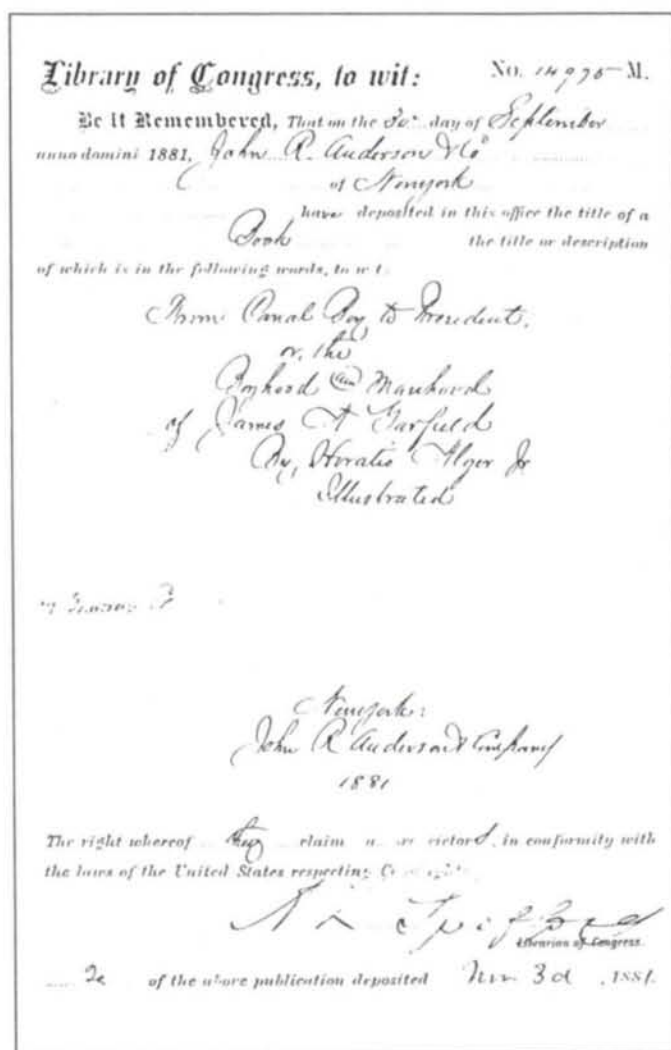 Library of Congress, to wit: No. 14975-M.
Be It Remembered, That on the 30" day of September
anno domini 1881, John R. Anderson & Co
of Newyork
have deposited in this office the title of a
Book the title or description
of which is in the following words, to wit:
From Canal Boy to President,
or, the
Boyhood and Manhood
of James A Garfield
By, Horatio Alger Jr
Illustrated
Newyork:
John R Anderson & Company
1881
The right whereof they claim as proprietors, in conformity with
the laws of the United States respecting Copyrights
A R Spofford
Librarian of Congress.
2c of the above publication deposited Nov 3d , 1881.